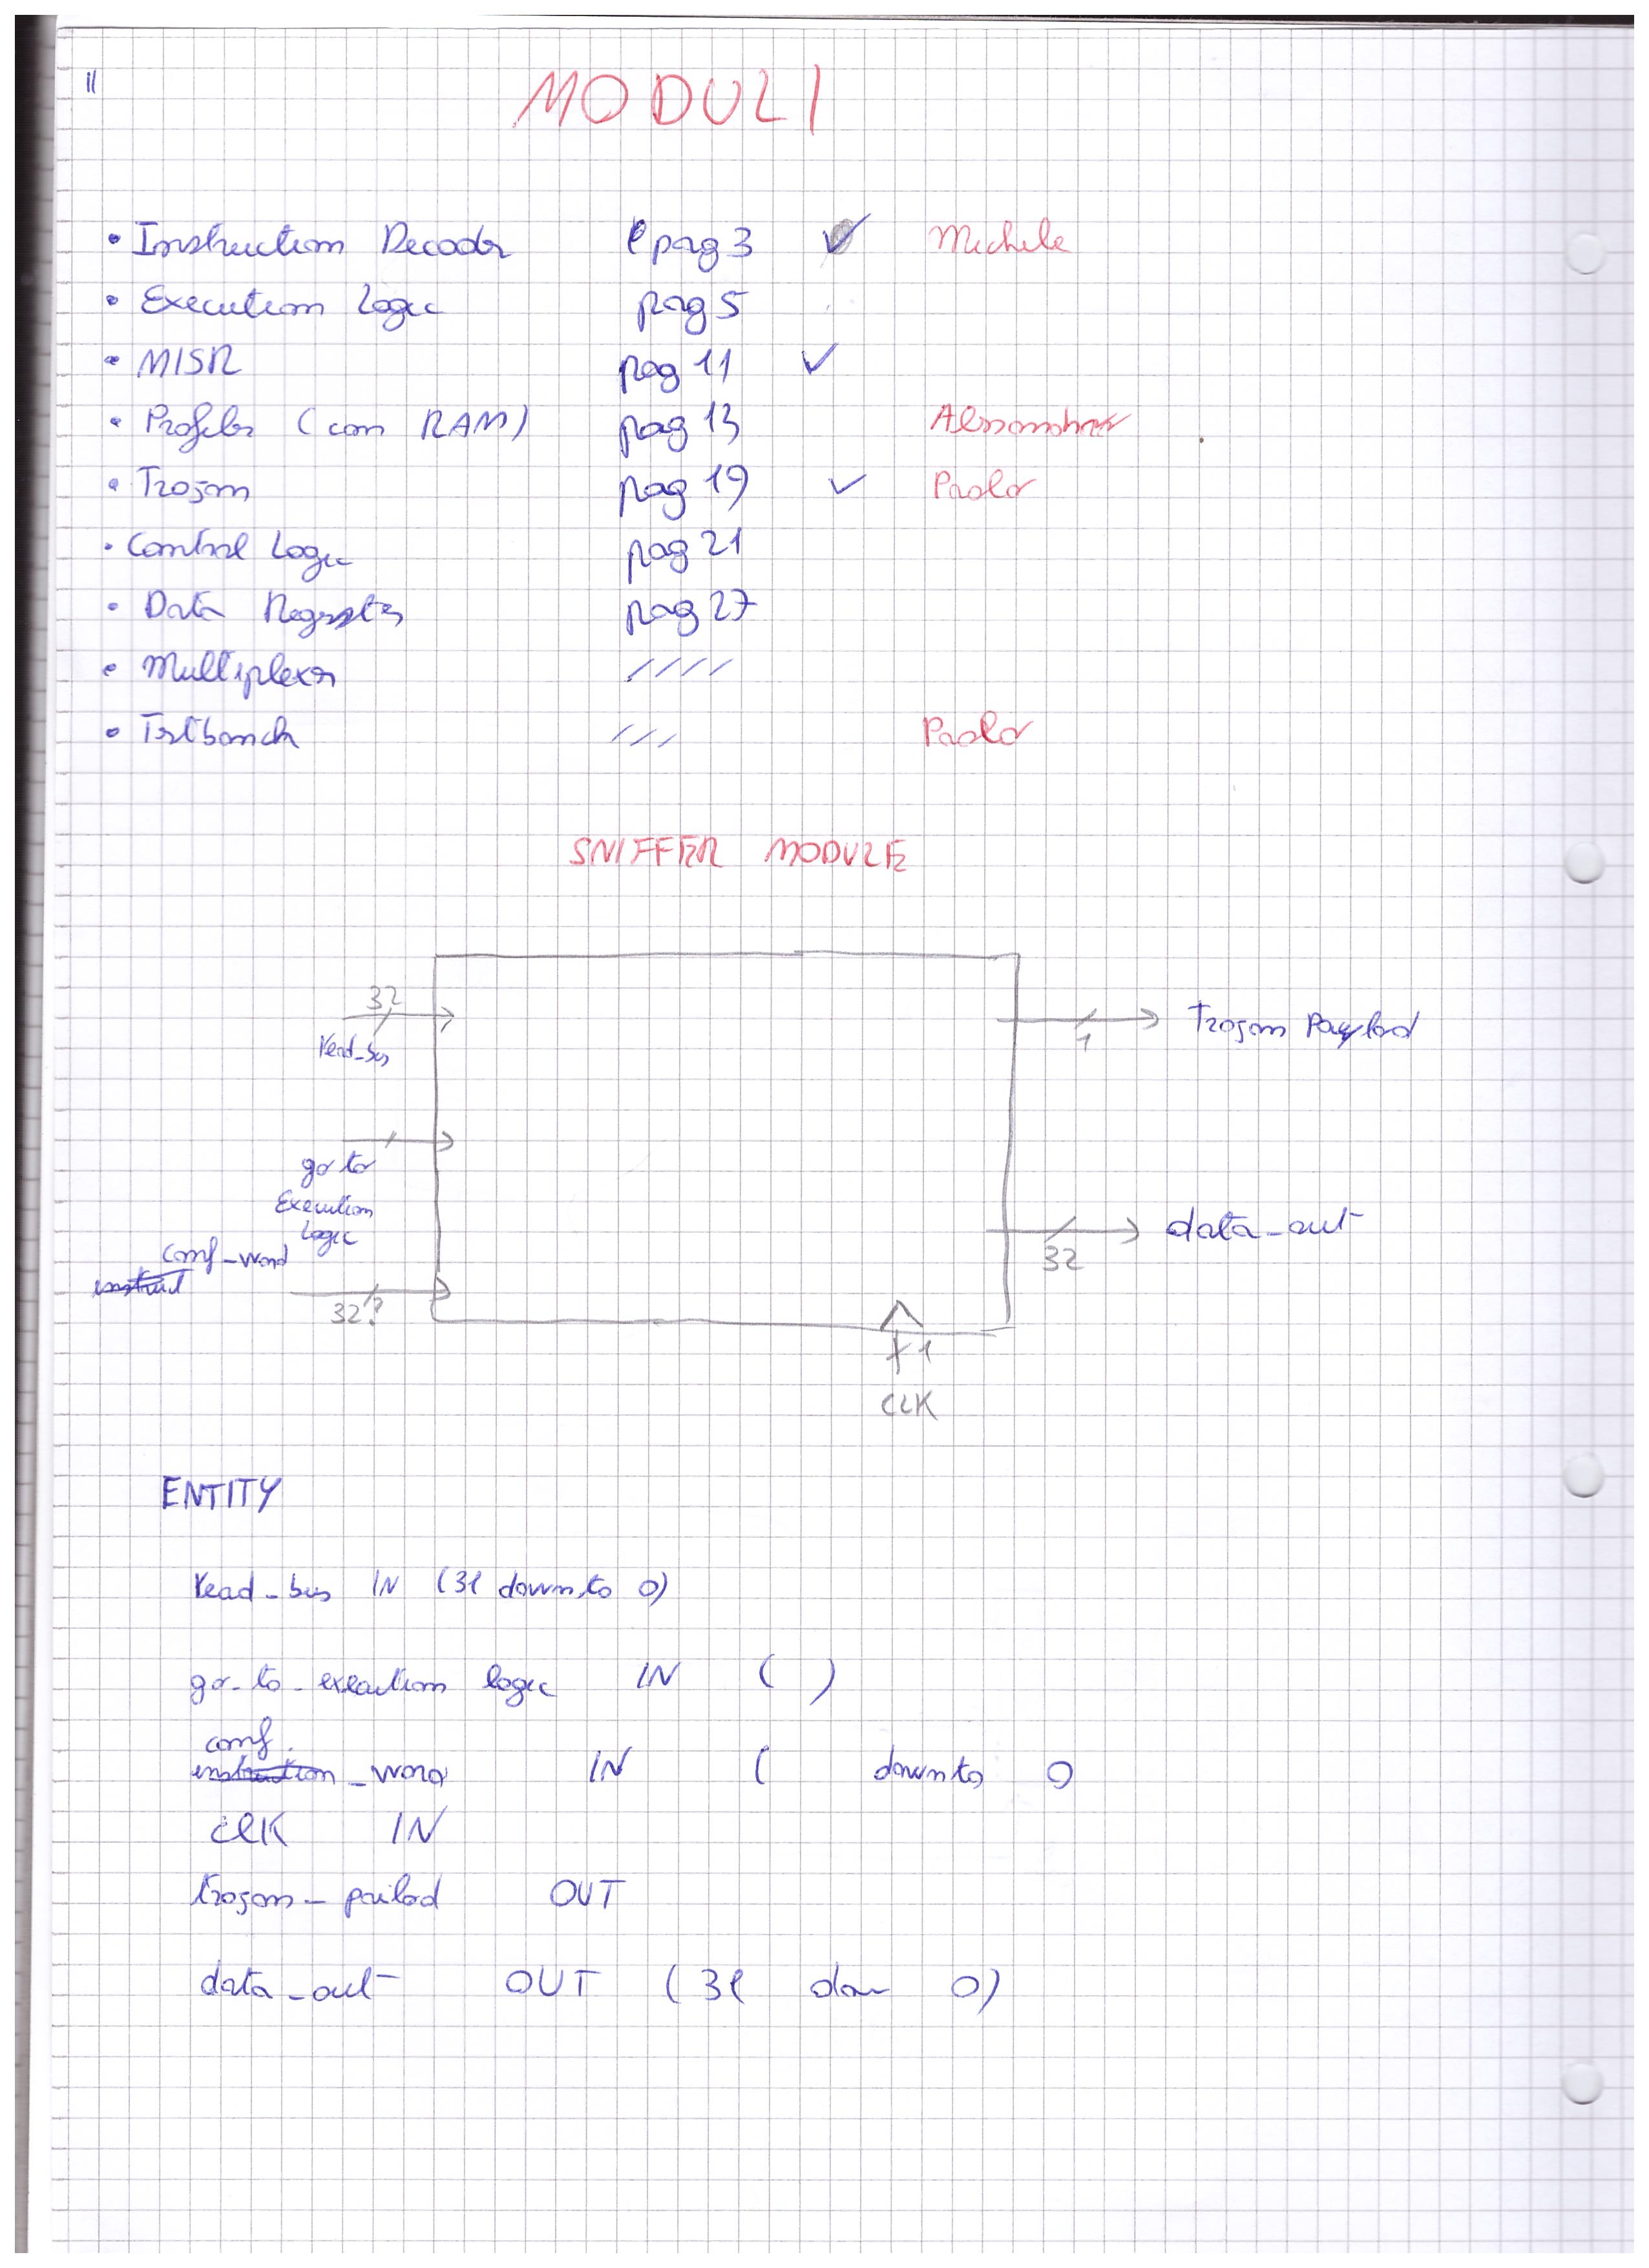 MODULI
• Instruction Decoder pag 3 ✓ Michele
• Execution Logic pag 5
• MISR pag 11 ✓
• Profiler (con RAM) pag 13 Alessandro
• Trojan pag 19 ✓ Paolo
• Control Logic pag 21
• Data Register pag 27
• Multiplexer ////
• Testbench /// Paolo
SNIFFER MODULE
32
read_bus
1 Trojan Payload
go to
Execution
Logic
conf_word
instruct
32?
data_out
32
1
CLK
ENTITY
read_bus IN (31 downto 0)
go_to_execution logic IN ( )
conf
instruction_word IN ( downto 0
CLK IN
trojan_pailod OUT
data_out OUT (31 dow 0)